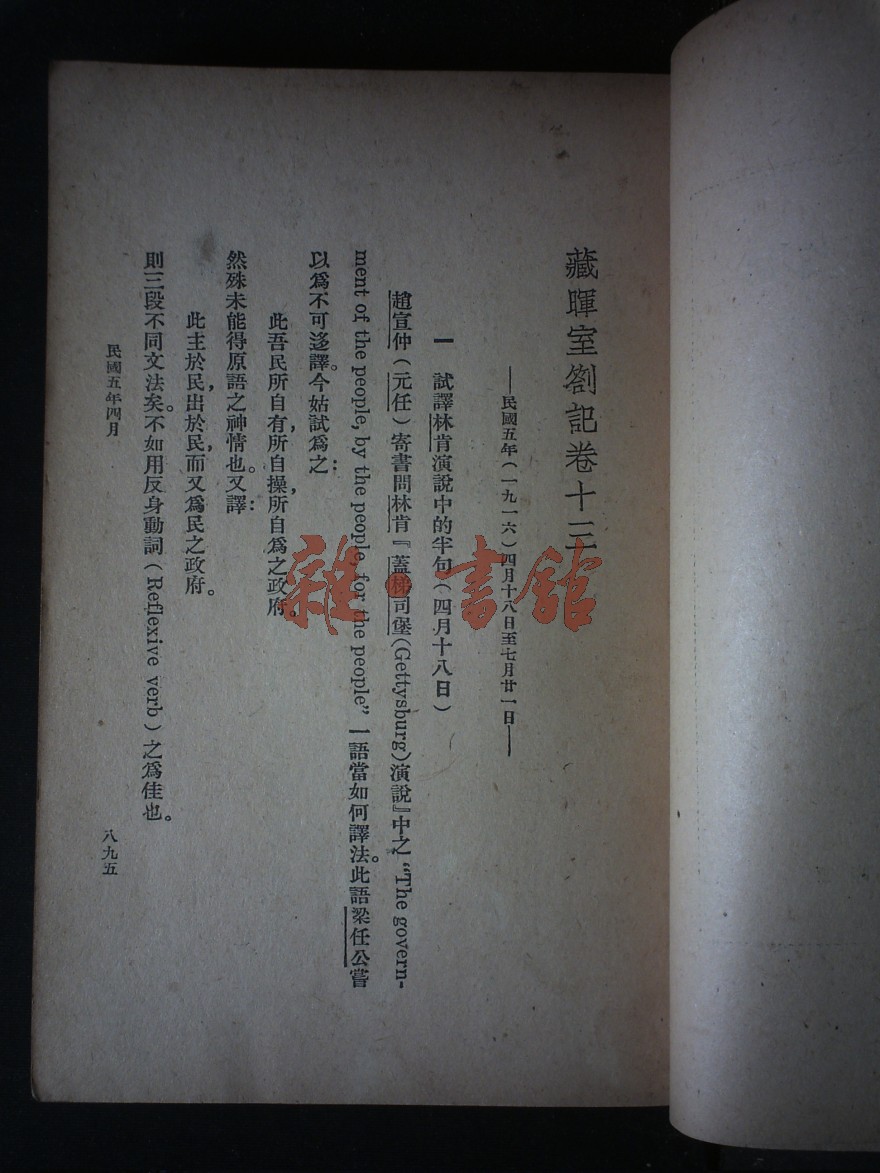 藏暉室劄記卷十三
——民國五年(一九一六)四月十八日至七月廿一日——
一 試譯林肯演說中的半句(四月十八日)
趙宣仲(元任)寄書問林肯『蓋梯司堡(Gettysburg)演說』中之“The govern-
ment of the people, by the people, for the people” 一語當如何譯法。此語梁任公嘗
以爲不可迻譯。今姑試爲之:
此吾民所自有,所自操,所自爲之政府。
然殊未能得原語之神情也。又譯:
此主於民,出於民,而又爲民之政府。
則三段不同文法矣。不如用反身動詞(Reflexive verb)之爲佳也。
民國五年四月
八九五
雜·書館